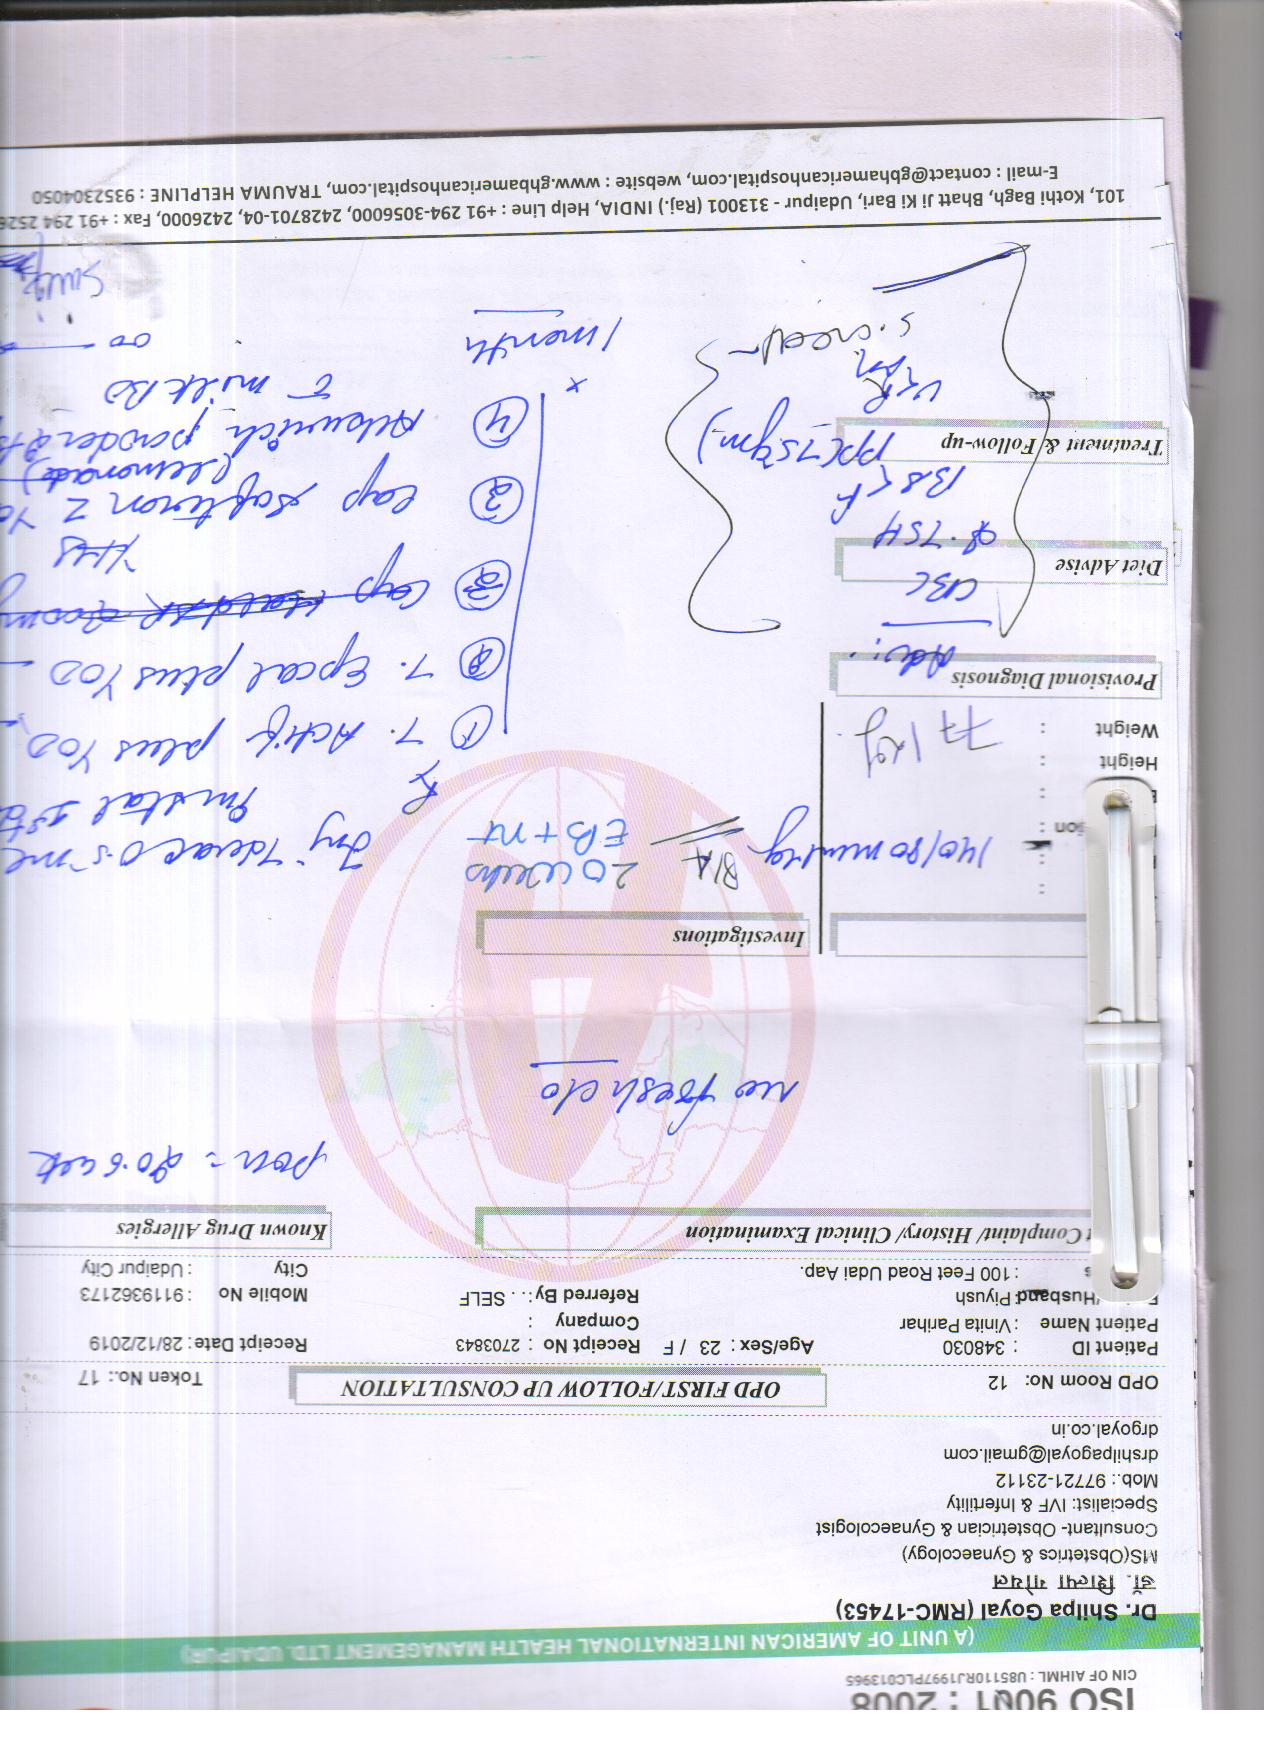 ISO 9001 : 2008
CIN OF AIHML : U85110RJ1997PLC013965
(A UNIT OF AMERICAN INTERNATIONAL HEALTH MANAGEMENT LTD. UDAIPUR)
Dr. Shilpa Goyal (RMC-17453)
डॉ. शिल्पा गोयल
MS(Obstetrics & Gynaecology)
Consultant- Obstetrician & Gynaecologist
Specialist: IVF & Infertility
Mob.: 97721-23112
drshilpagoyal@gmail.com
drgoyal.co.in
OPD Room No: 12 OPD FIRST/FOLLOW UP CONSULTATION Token No.: 17
Patient ID : 348030 Age/Sex : 23 / F Receipt No : 2703843 Receipt Date : 28/12/2019
Patient Name : Vinita Parihar Company :
/Husband : Piyush Referred By : . . SELF Mobile No : 9119362173
s : 100 Feet Road Udai Aap. City : Udaipur City
t Complaint/ History/ Clinical Examination Known Drug Allergies
no fresh c/o
Investigations
140/80 mmHg P/A 20 weeks
EB + nt
Height :
Weight : 77 kg
Inj Tdvac 0.5 ml
① T. Actif plus
② T. Epcal plus
Cap
③ Cap Softeron Z
(Lemonade)
④ powder
c milk BD
x 1 month
Provisional Diagnosis
Adv:
CBC
Diet Advise
S. TSH
BS < F
PP (75gm)
Treatment & Follow-up
Urine R/M
S. creat
101, Kothi Bagh, Bhatt Ji Ki Bari, Udaipur - 313001 (Raj.) INDIA, Help Line : +91 294-3056000, 2428701-04, 2426000, Fax : +91 294 2528
E-mail : contact@gbhamericanhospital.com, website : www.gbhamericanhospital.com, TRAUMA HELPLINE : 9352304050